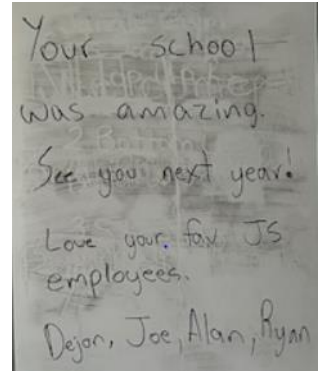 Your school
was amazing.
See you next year!
Love your fav JS
employees.
Dejon, Joe, Alan, Ryan